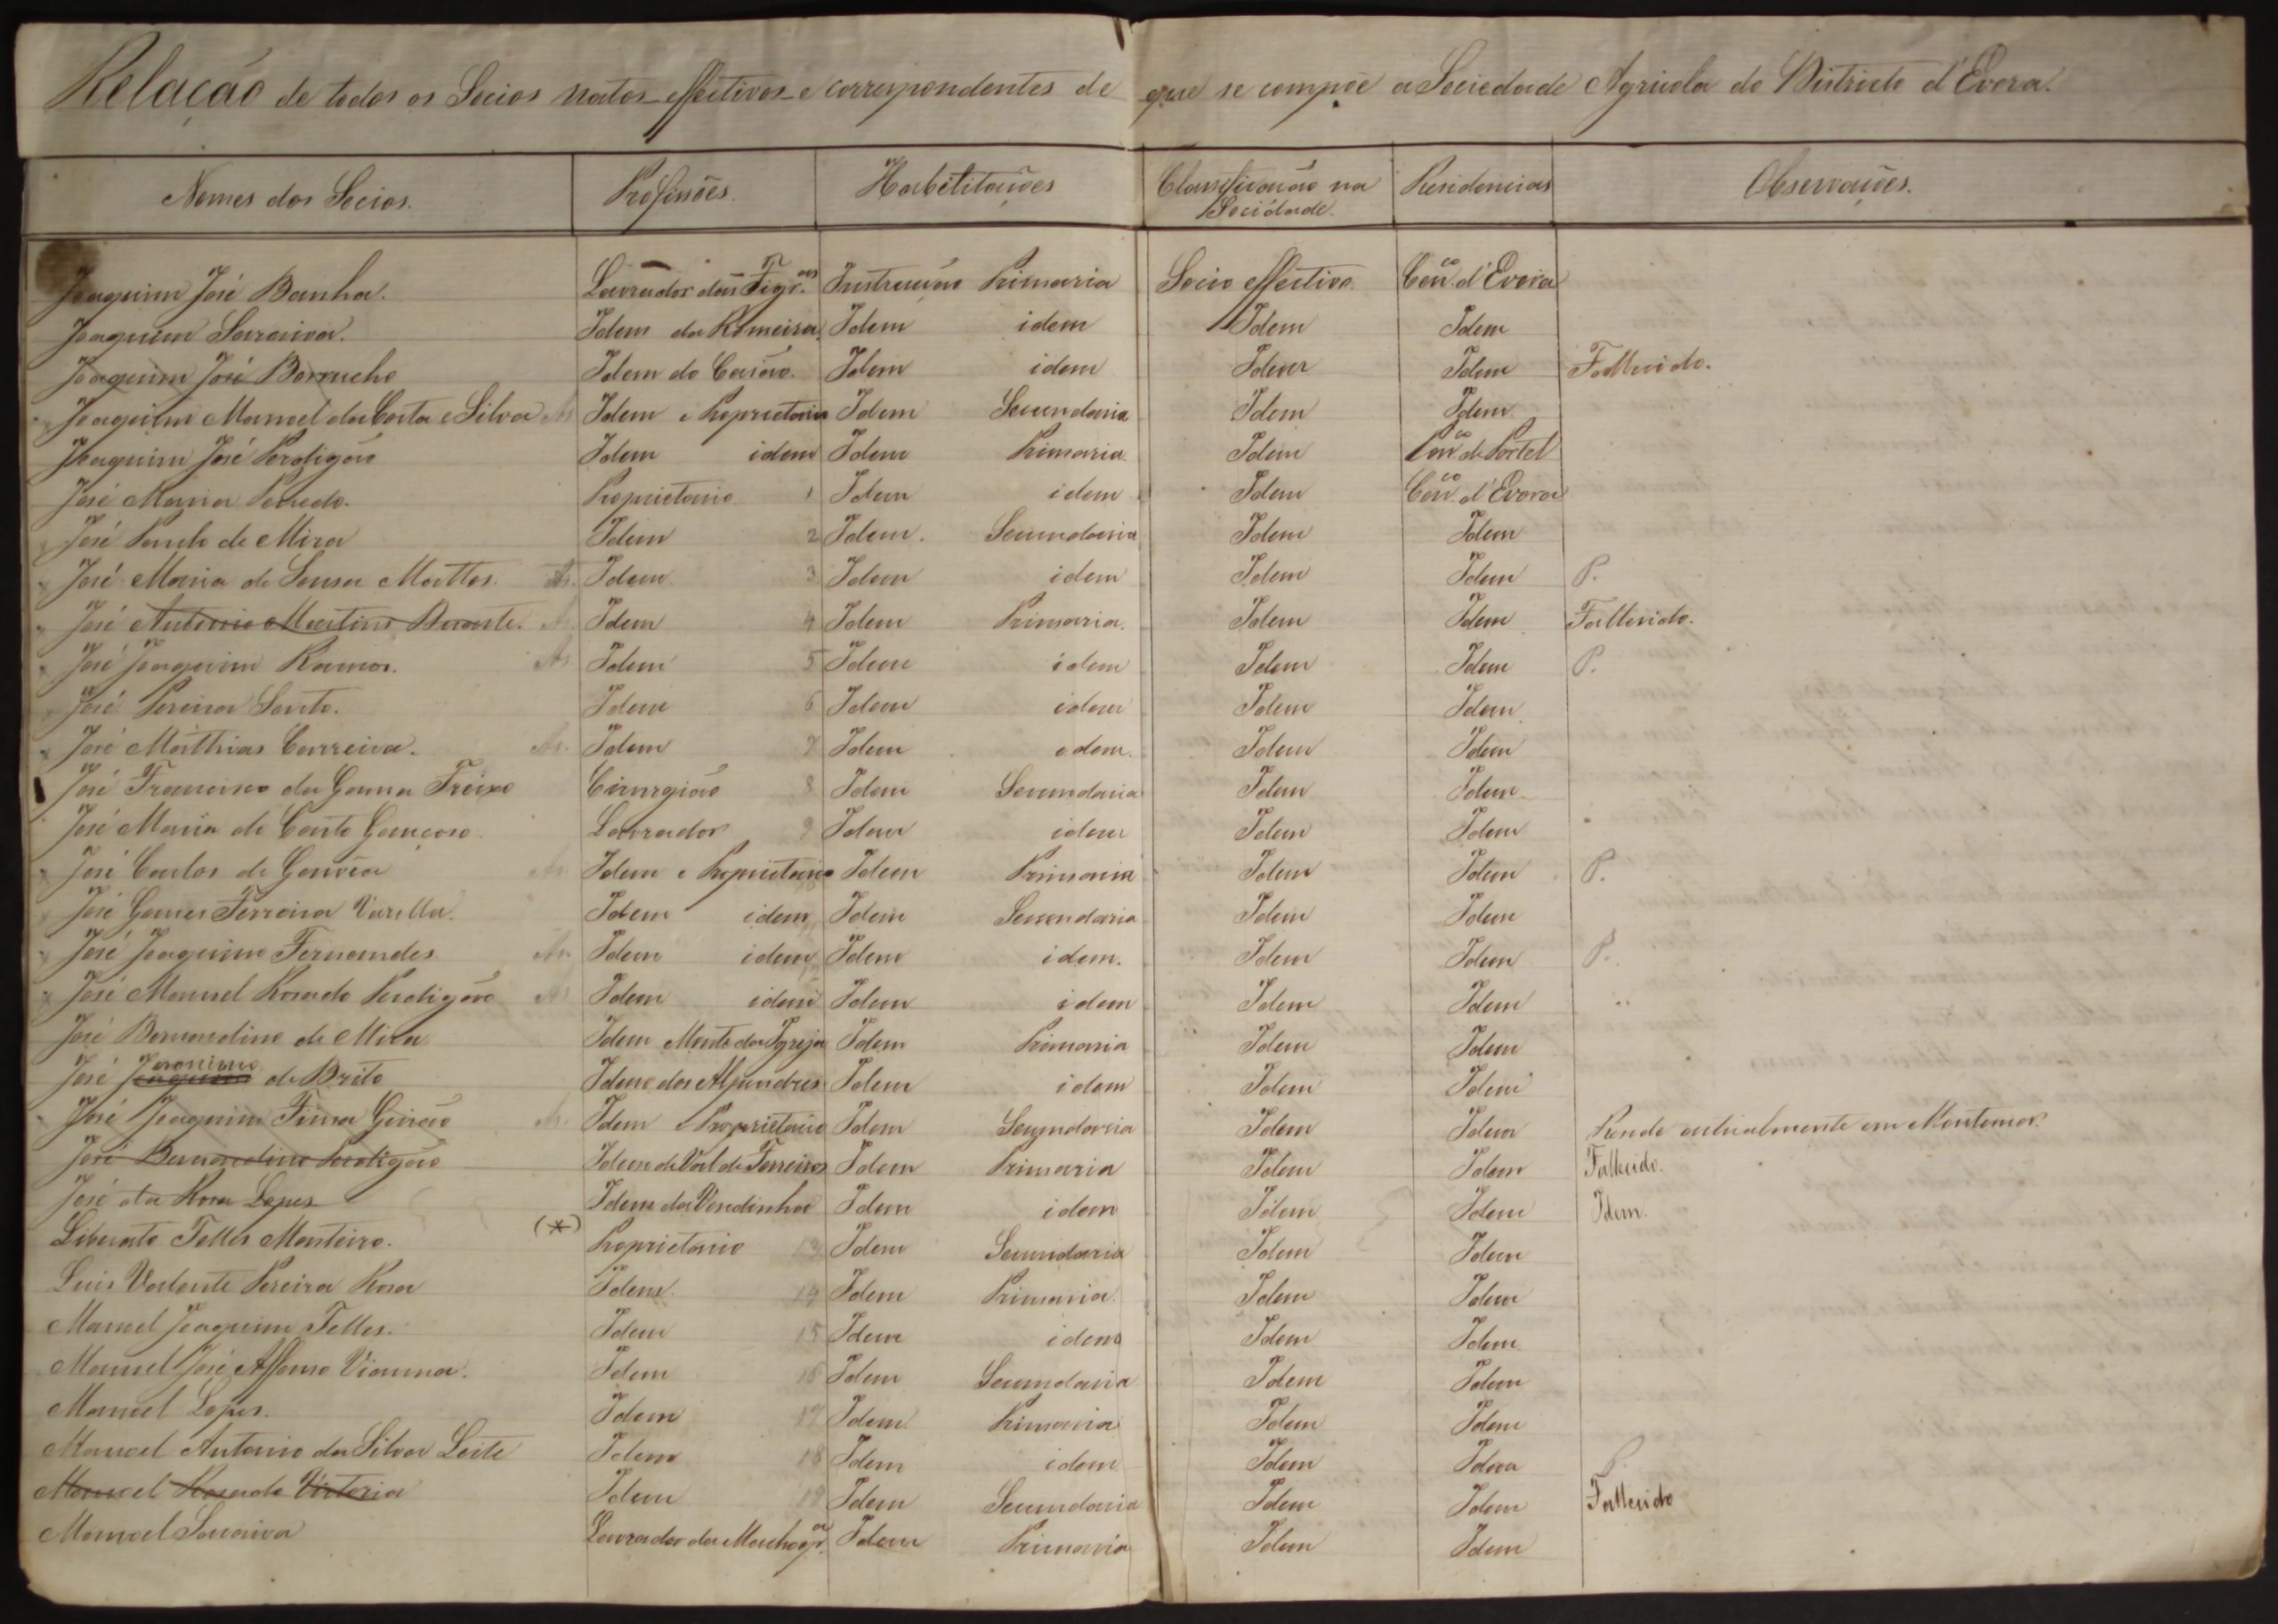 Relação de todos os Socios natos effectivos e correspondentes de que se compõe a Sociedade Agricola do Districto d'Evora.
Nomes dos Socios. Profissões. Habelitações Classificação na Sociedade. Residencias Observações.
Joaquim José Banha. Lavrador das Instrução Primaria Socio effectivo Con.co d'Evora
Joaquim Saraiva. Idem da Romeira. Idem idem Idem Idem
Joaquim José Barrucho Idem do Idem idem Idem Idem Fallecido.
Joaquim Manoel da Costa e Silva Idem e Proprietario Idem Secundaria Idem Idem
Joaquim José Perdigão Idem idem Idem Primaria. Idem Con.co de Portel
José Maria Proprietario 1 Idem idem Idem Con.co d'Evora
José Paulo de Mira Idem 2 Idem. Secundaria Idem Idem
José Maria de Sousa Mattos. Idem 3 Idem idem Idem Idem P.
José Antonio Martins Idem 4 Idem Primaria. Idem Idem Fallecido.
José Joaquim Ramos. Idem 5 Idem idem Idem Idem P.
José Pereira Idem 6 Idem idem Idem Idem
José Mathias Carreira. Idem 7 Idem idem. Idem Idem
José Francisco da Gama Freixo Cirurgião 8 Idem Secundaria Idem Idem
José Maria do Couto Lavrador 9 Idem idem Idem Idem
José Carlos de Gouvêa Idem e Proprietario Idem Primaria Idem Idem P.
José Gomes Ferreira Varella. Idem idem Idem Secundaria Idem Idem
José Joaquim Fernandes Idem idem Idem idem. Idem Idem P.
José Manuel Rosado Perdigão Idem idem Idem idem Idem Idem
José Bernardino de Mira Idem Monte da Igreja Idem Primaria Idem Idem
José Jeronimo de Brito Idem dos Idem idem Idem Idem
José Joaquim Idem e Proprietario Idem Secundaria Idem Idem Reside actualmente em Montemor.
José Bernardino Perdigão Idem de Val de Ferreiros Idem Primaria Idem Idem Fallecido.
José da Rosa Lopes Idem da Idem idem Idem Idem Idem.
Liberato Telles Monteiro. (*) Proprietario 13 Idem Secundaria Idem Idem
Luis Valente Pereira Rosa Idem. 14 Idem Primaria. Idem Idem
Manuel Joaquim Telles. Idem 15 Idem idem Idem Idem
Manuel José Affonso Vianna. Idem 16 Idem Secundaria Idem Idem
Manuel Lopes. Idem 17 Idem Primaria Idem Idem
Manoel Antonio da Silva Leite Idem 18 Idem idem Idem Idem P.
Manuel Rosado Victoria Idem 19 Idem Secundaria Idem Idem Fallecido
Manoel Saraiva Lavrador da Idem Primaria Idem Idem